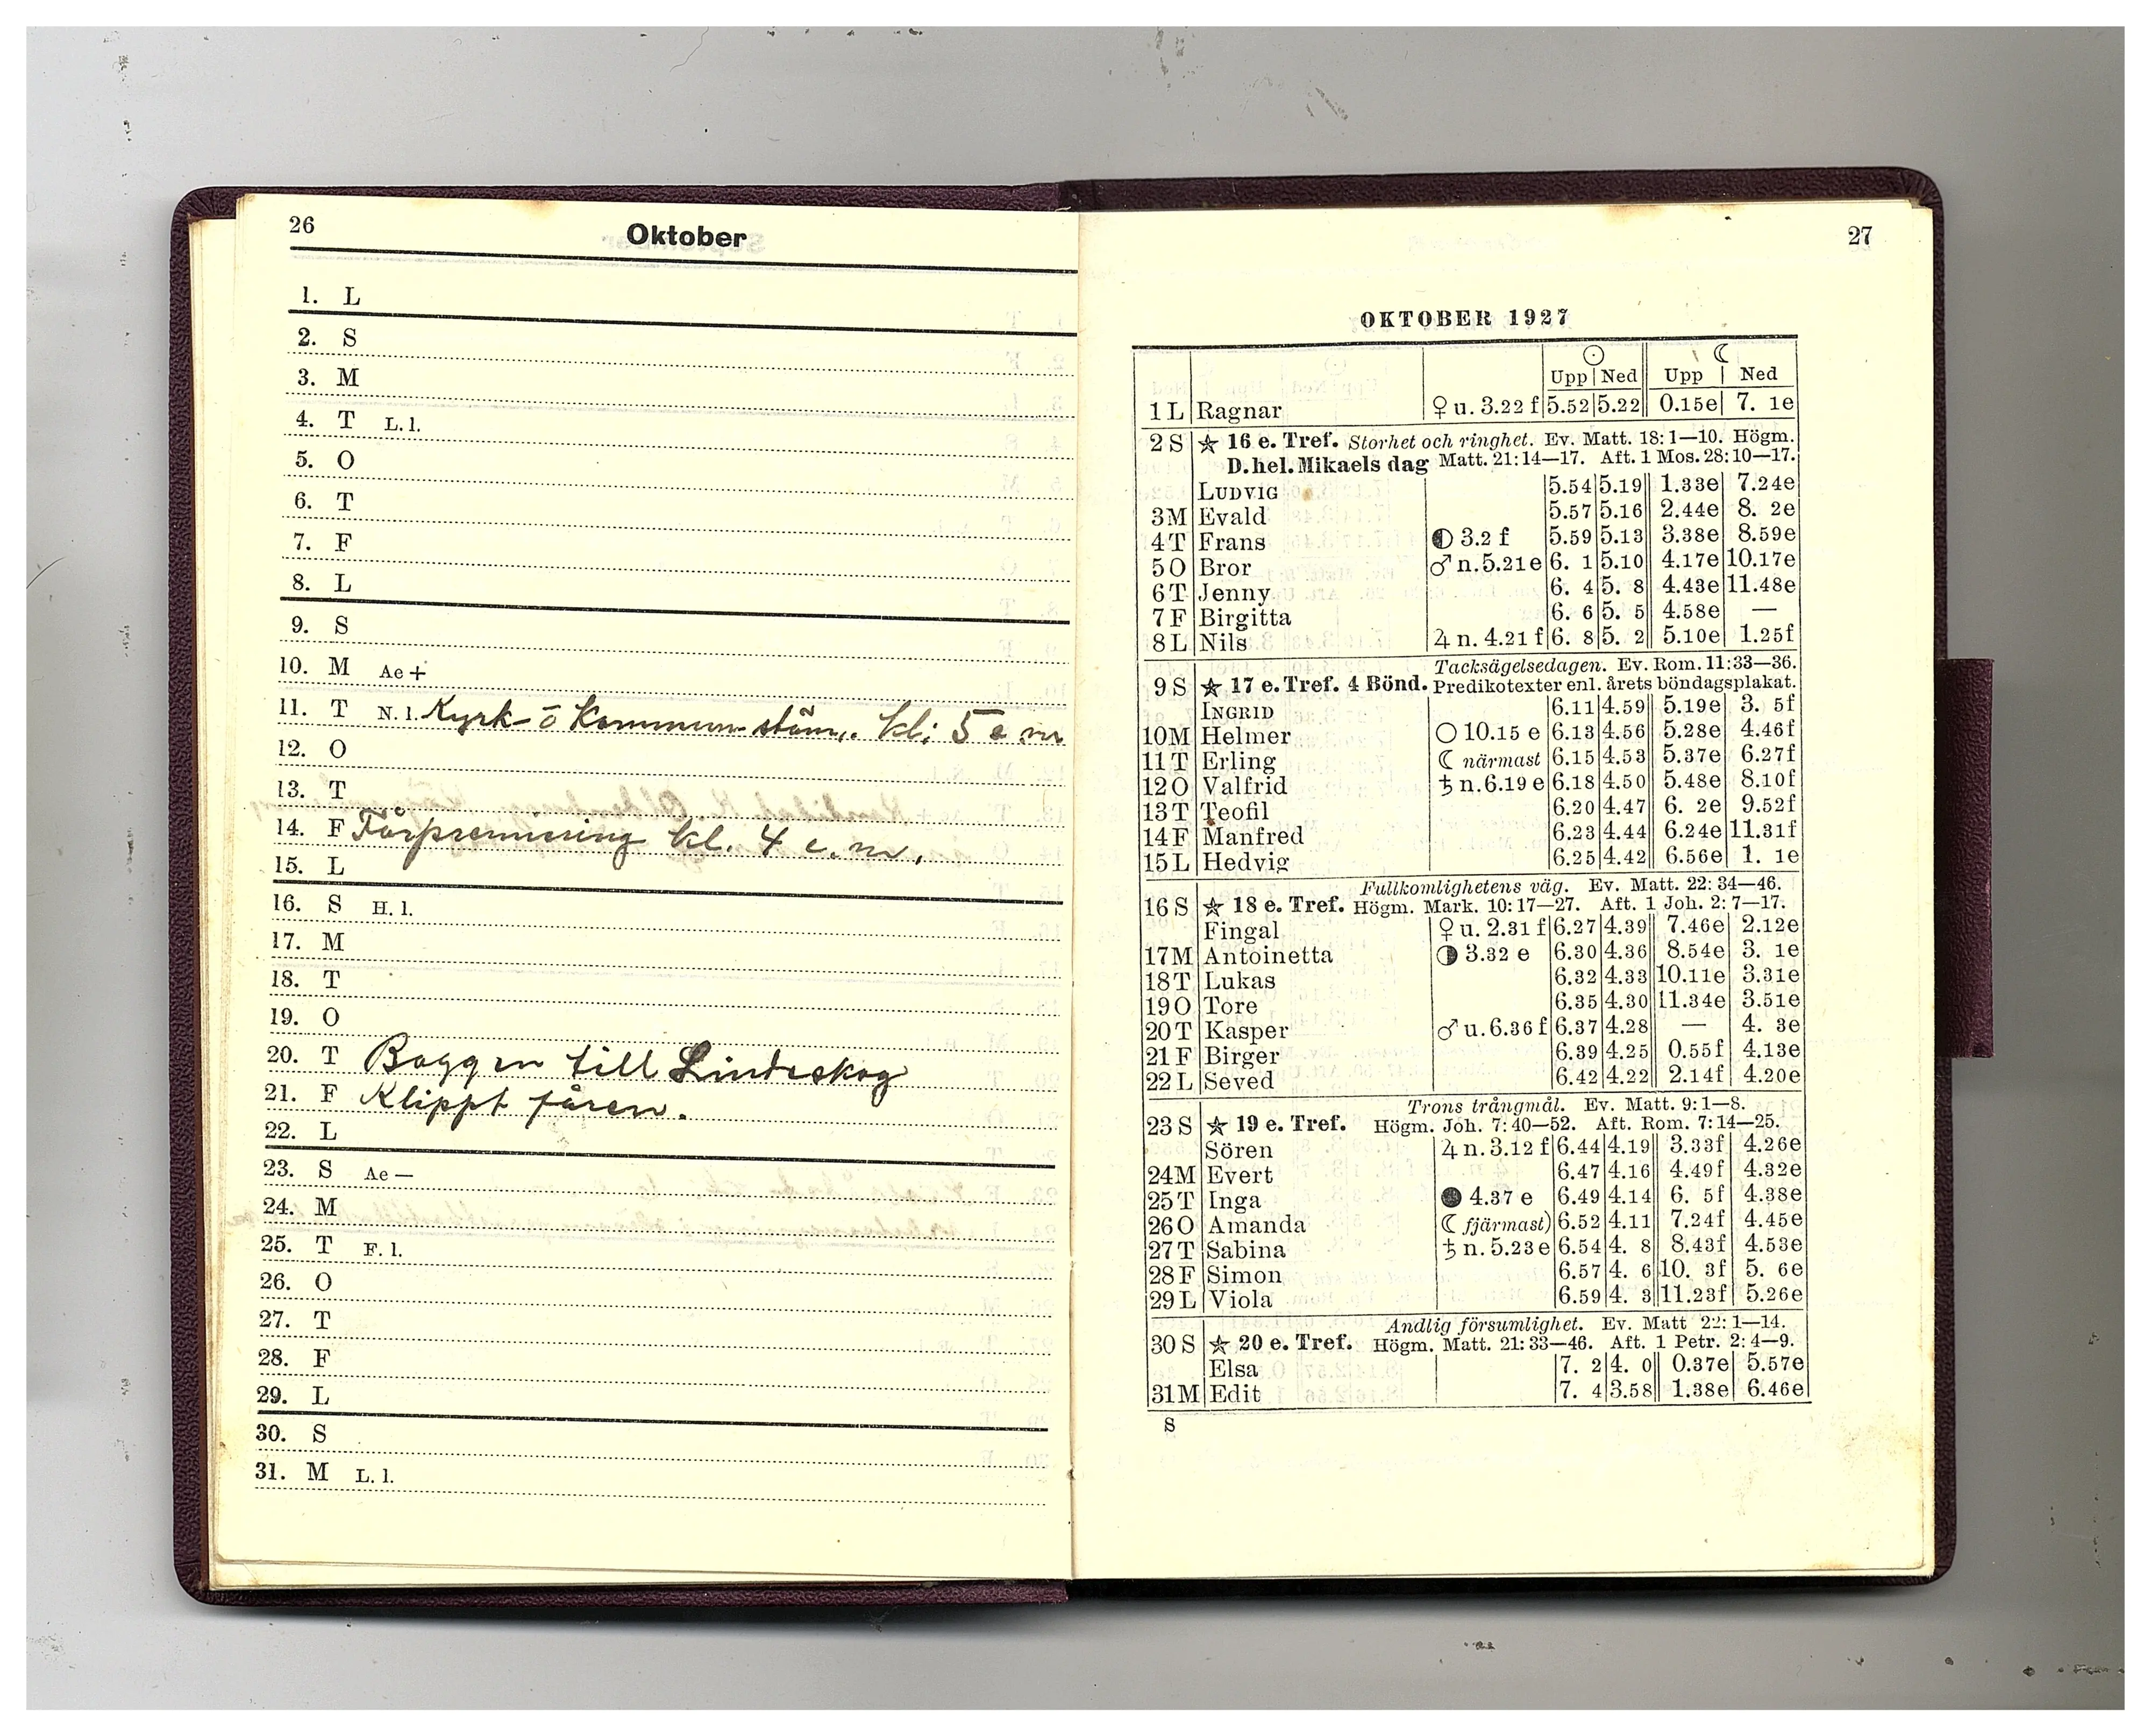 26
Oktober
1. L
2. S
3. M
4. T L. l.
5. O
6. T
7. F
8. L
9. S
10. M Ae +
11. T N. l. Kyrk- o Kommun stäm. kl: 5 e m
12. O
13. T
14. F Fårpremiering kl. 4 e. m.
15. L
16. S H. l.
17. M
18. T
19. O
20. T Baggen till Lindeskog
21. F Klippt fåren.
22. L
23. S Ae —
24. M
25. T F. l.
26. O
27. T
28. F
29. L
30. S
31. M L. l.
27
OKTOBER 1927
☉ ☾
Upp | Ned Upp | Ned
1 L Ragnar ♀ u. 3.22 f 5.52 5.22 0.15e 7. 1e
2 S ★ 16 e. Tref. Storhet och ringhet. Ev. Matt. 18: 1—10. Högm.
D. hel. Mikaels dag Matt. 21: 14—17. Aft. 1 Mos. 28: 10—17.
LUDVIG 5.54 5.19 1.33e 7.24e
3 M Evald 5.57 5.16 2.44e 8. 2e
4 T Frans ◐ 3.2 f 5.59 5.13 3.38e 8.59e
5 O Bror ♂ n. 5.21 e 6. 1 5.10 4.17e 10.17e
6 T Jenny 6. 4 5. 8 4.43e 11.48e
7 F Birgitta 6. 6 5. 5 4.58e —
8 L Nils ♃ n. 4.21 f 6. 8 5. 2 5.10e 1.25f
Tacksägelsedagen. Ev. Rom. 11: 33—36.
9 S ★ 17 e. Tref. 4 Bönd. Predikotexter enl. årets böndagsplakat.
INGRID 6.11 4.59 5.19e 3. 5f
10 M Helmer ○ 10.15 e 6.13 4.56 5.28e 4.46f
11 T Erling ☾ närmast 6.15 4.53 5.37e 6.27f
12 O Valfrid ♄ n. 6.19 e 6.18 4.50 5.48e 8.10f
13 T Teofil 6.20 4.47 6. 2e 9.52f
14 F Manfred 6.23 4.44 6.24e 11.31f
15 L Hedvig 6.25 4.42 6.56e 1. 1e
Fullkomlighetens väg. Ev. Matt. 22: 34—46.
16 S ★ 18 e. Tref. Högm. Mark. 10: 17—27. Aft. 1 Joh. 2: 7—17.
Fingal ♀ u. 2.31 f 6.27 4.39 7.46e 2.12e
17 M Antoinetta ◑ 3.32 e 6.30 4.36 8.54e 3. 1e
18 T Lukas 6.32 4.33 10.11e 3.31e
19 O Tore 6.35 4.30 11.34e 3.51e
20 T Kasper ♂ u. 6.36 f 6.37 4.28 — 4. 3e
21 F Birger 6.39 4.25 0.55f 4.13e
22 L Seved 6.42 4.22 2.14f 4.20e
Trons trångmål. Ev. Matt. 9: 1—8.
23 S ★ 19 e. Tref. Högm. Joh. 7: 40—52. Aft. Rom. 7: 14—25.
Sören ♃ n. 3.12 f 6.44 4.19 3.33f 4.26e
24 M Evert 6.47 4.16 4.49f 4.32e
25 T Inga ● 4.37 e 6.49 4.14 6. 5f 4.38e
26 O Amanda ☾ fjärmast) 6.52 4.11 7.24f 4.45e
27 T Sabina ♄ n. 5.23 e 6.54 4. 8 8.43f 4.53e
28 F Simon 6.57 4. 6 10. 3f 5. 6e
29 L Viola 6.59 4. 3 11.23f 5.26e
Andlig försumlighet. Ev. Matt 22: 1—14.
30 S ★ 20 e. Tref. Högm. Matt. 21: 33—46. Aft. 1 Petr. 2: 4—9.
Elsa 7. 2 4. 0 0.37e 5.57e
31 M Edit 7. 4 3.58 1.38e 6.46e
S